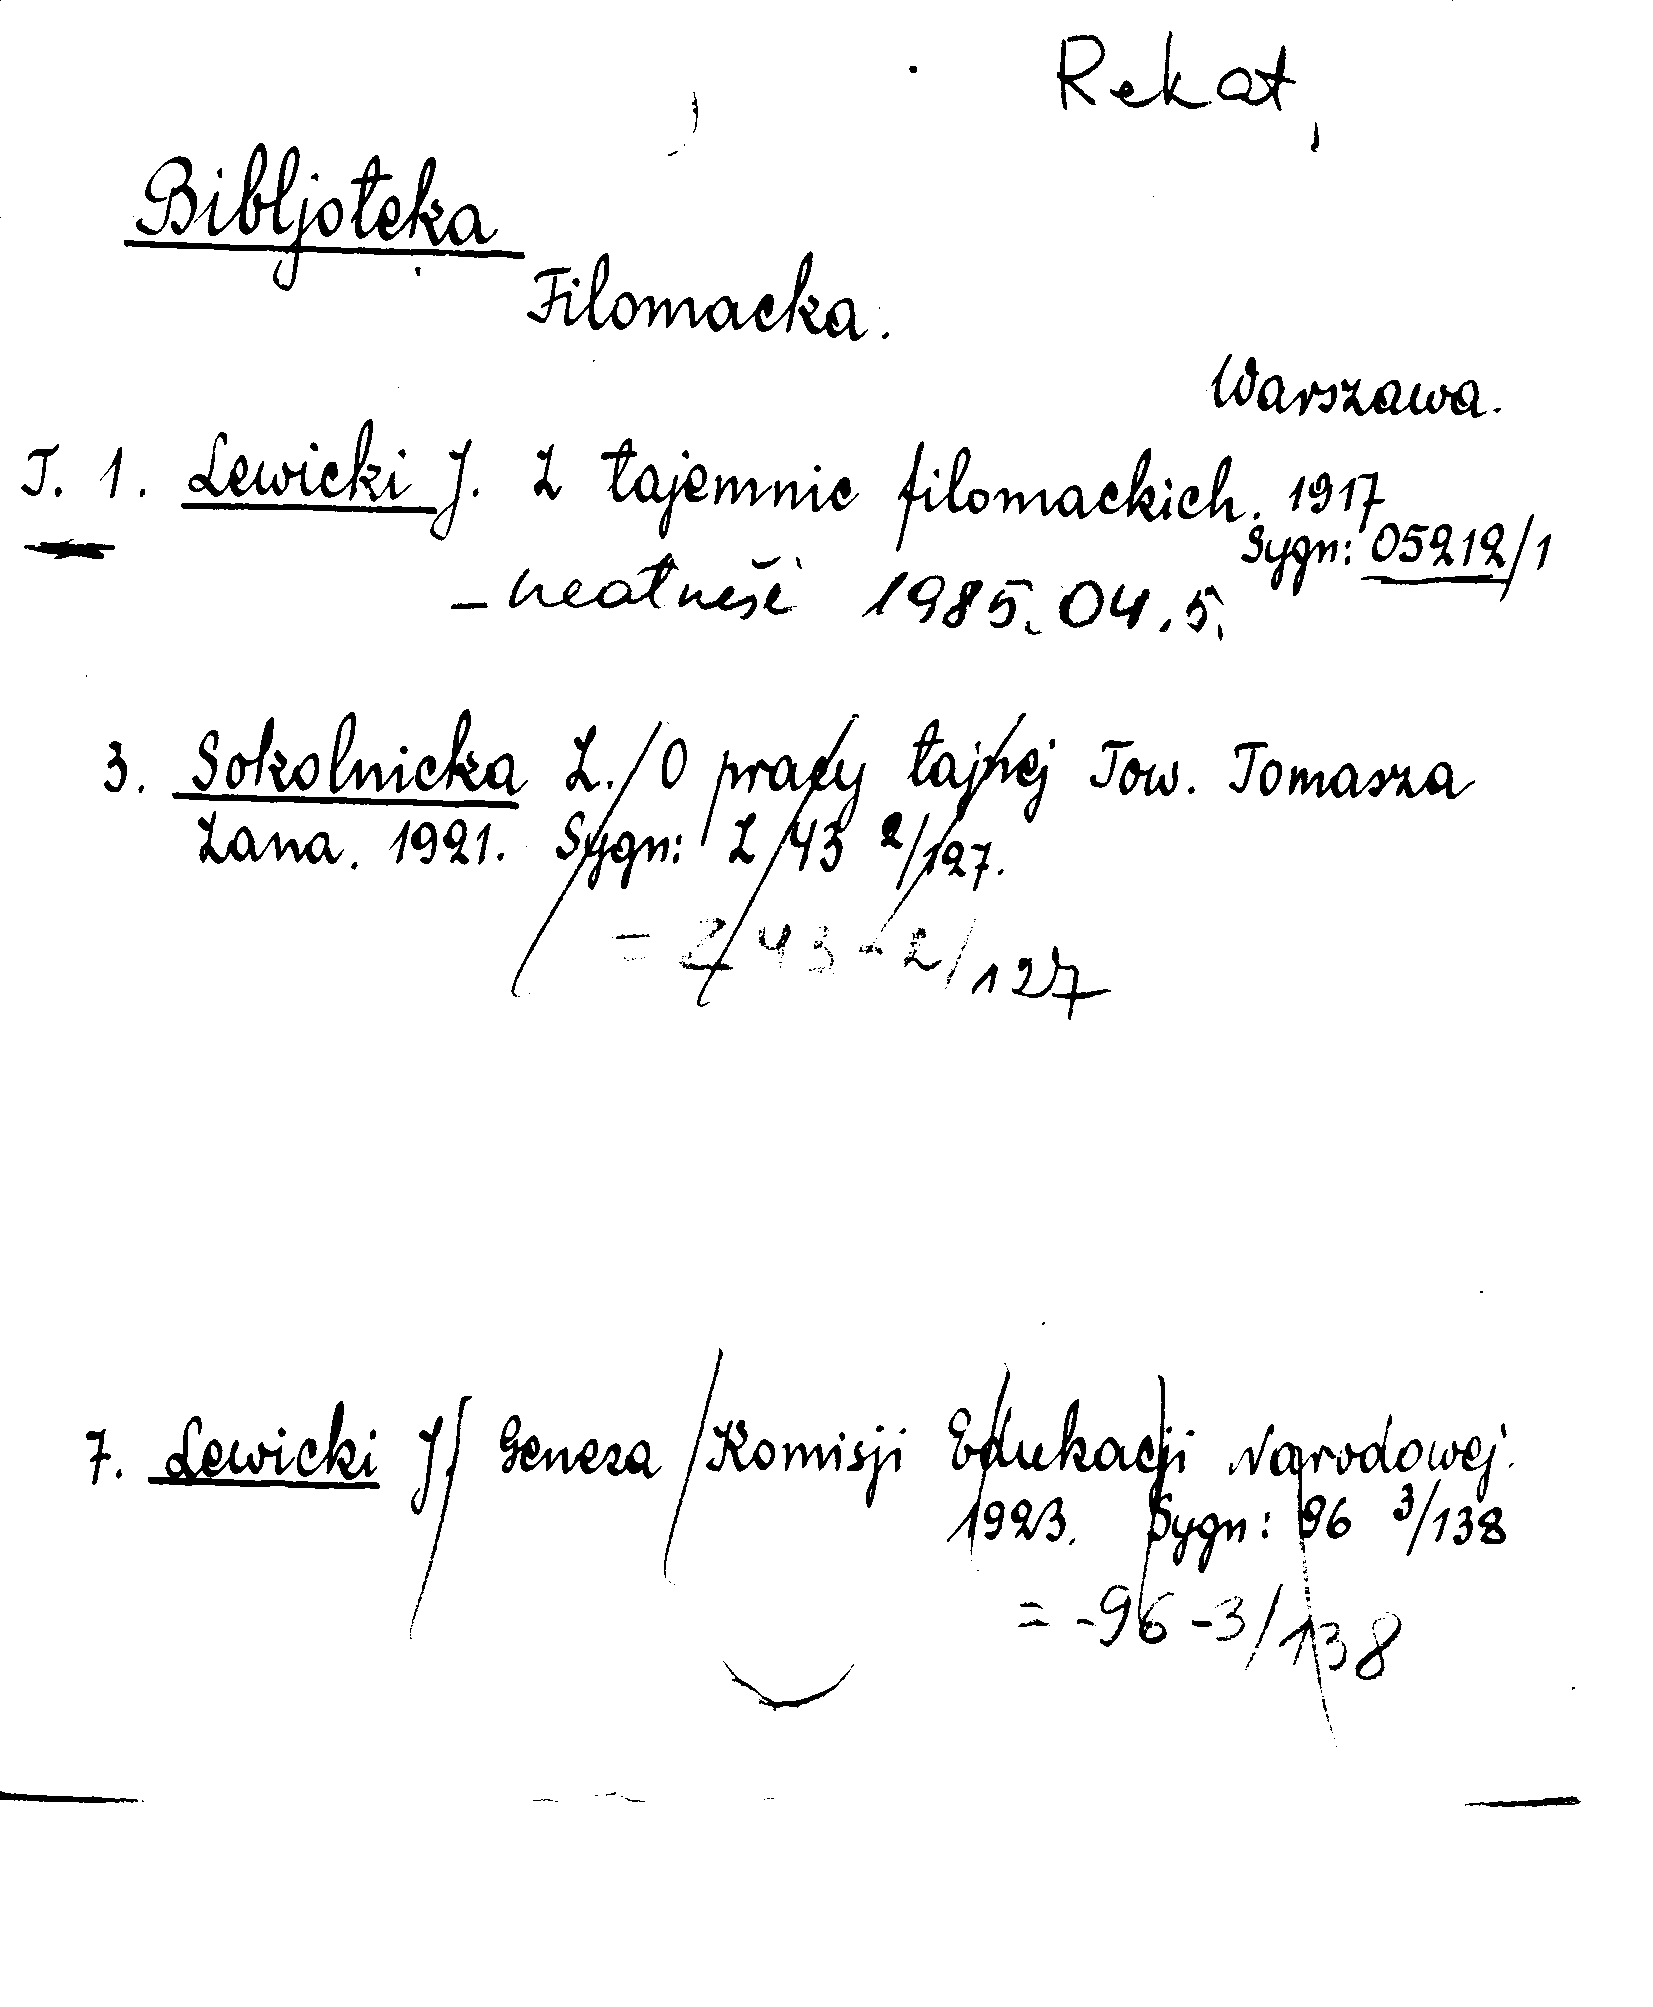 Rekat,
Bibljoteka
Filomacka.
Warszawa.
T. 1. Lewicki J. Z tajemnic filomackich. 1917
Sygn: 05212/1
1985.04.5.
3. Sokolnicka Z. O pracy tajnej Tow. Tomasza
Zana. 1921. Sygn: Z 43 2/127.
= Z 43 - 2/127
7. Lewicki J. Geneza Komisji Edukacji Narodowej.
1923. Sygn: 96 3/138
= -96 -3/138